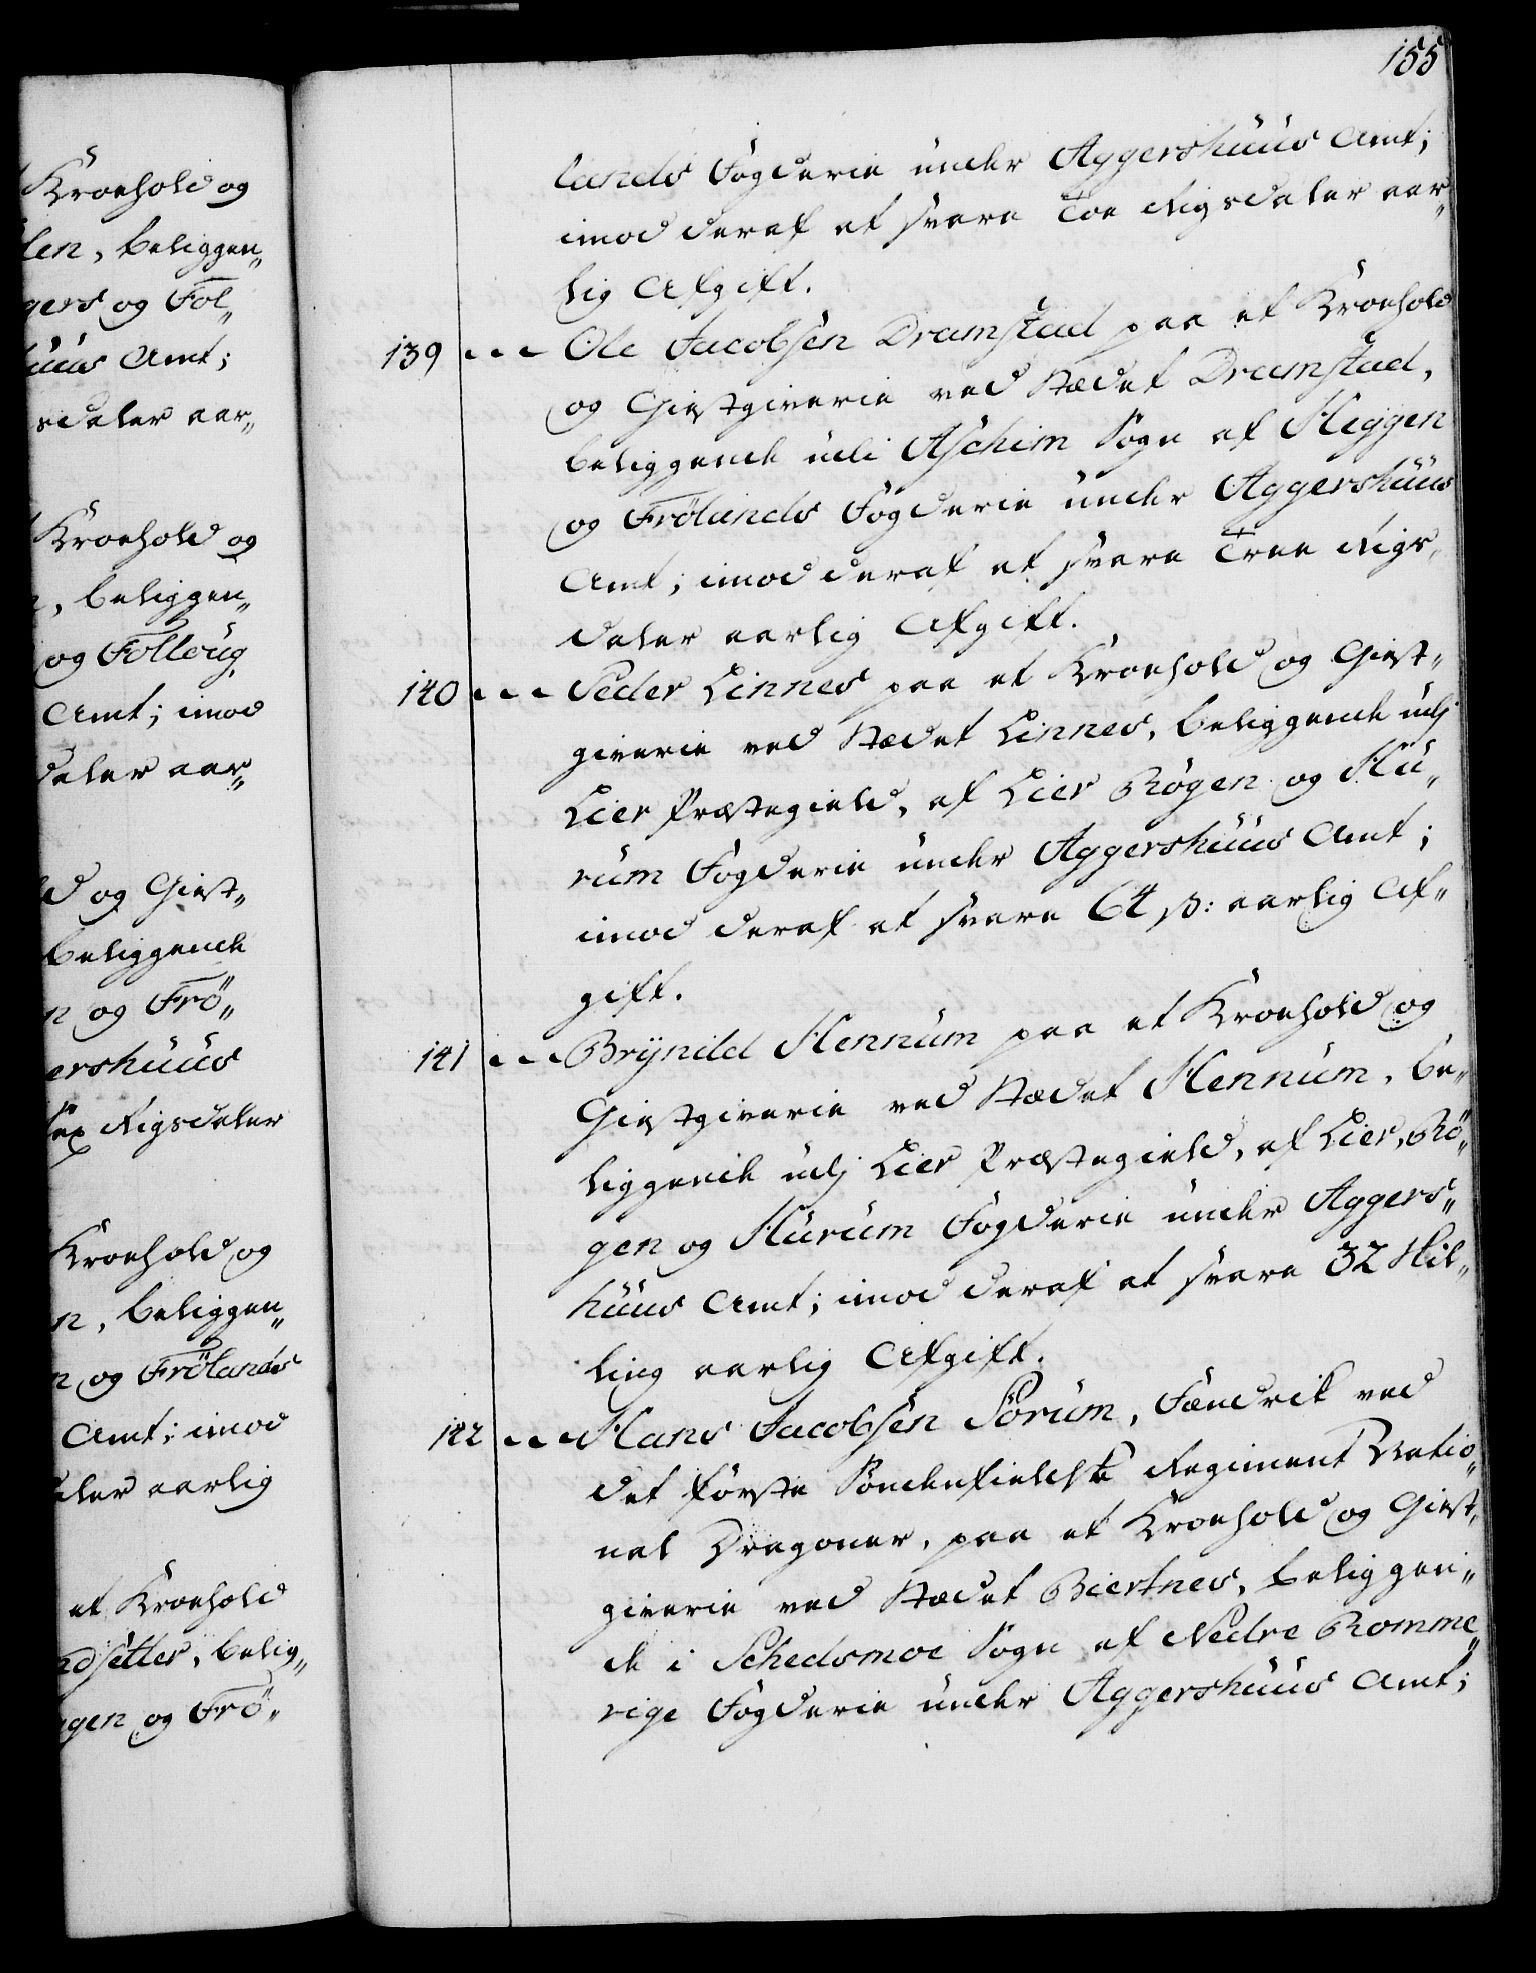 Kroehold og
len, beliggen„
gers og Fol„
huus Amt;
sdaler aar„
Kroehold og
, beliggen„
og Folloug
Amt; imod
daler aar„
d og Giest„
beliggende
n og Frö„
ershuus
Sex Rigsdaler
Kroehold og
n, beliggen„
n og Frölands
Amt; imod
daler aarlig
et Kroehold
ndsetter, belig„
ggen og Frö„
155
lands Fogderie under Aggershuus Amt;
imod deraf at svare Toe Rigsdaler aar„
lig Afgift.
139 Ole Jacobsen Dramstad paa et Kroehold
og Giestgiverie ved Stædet Dramstad,
beliggende udi Aschim Sogn af Heggen
og Frölands Fogderie under Aggershuus
Amt; imod deraf at svare Tree Rigs„
daler aarlig Afgift.
140 Peder Linnes paa et Kroehold og Giest„
giverie ved Stædet Linnes, beliggende udj
Lier Præstegield, af Lier Rögen og Hu„
rum Fogderie under Aggershuus Amt;
imod deraf at svare 64 ß: aarlig Af„
gift.
141 Brÿnild Hennum paa et Kroehold og
Giestgiverie ved Stædet Hennum, be„
liggende udj Lier Præstegield, af Lier, Rö„
gen og Hurum Fogderie under Aggers„
huus Amt; imod deraf at svare 32 Skil„
ling aarlig Afgift.
142 Hans Jacobsen Sörum, Fændrik ved
det förste Söndenfieldske Regiment Natio„
nal Dragoner, paa et Kroehold og Giest„
giverie ved Stædet Biertnes, beliggen„
de i Schedsmoe Sogn af Nedre Romme„
rige Fogderie under Aggershuus Amt;